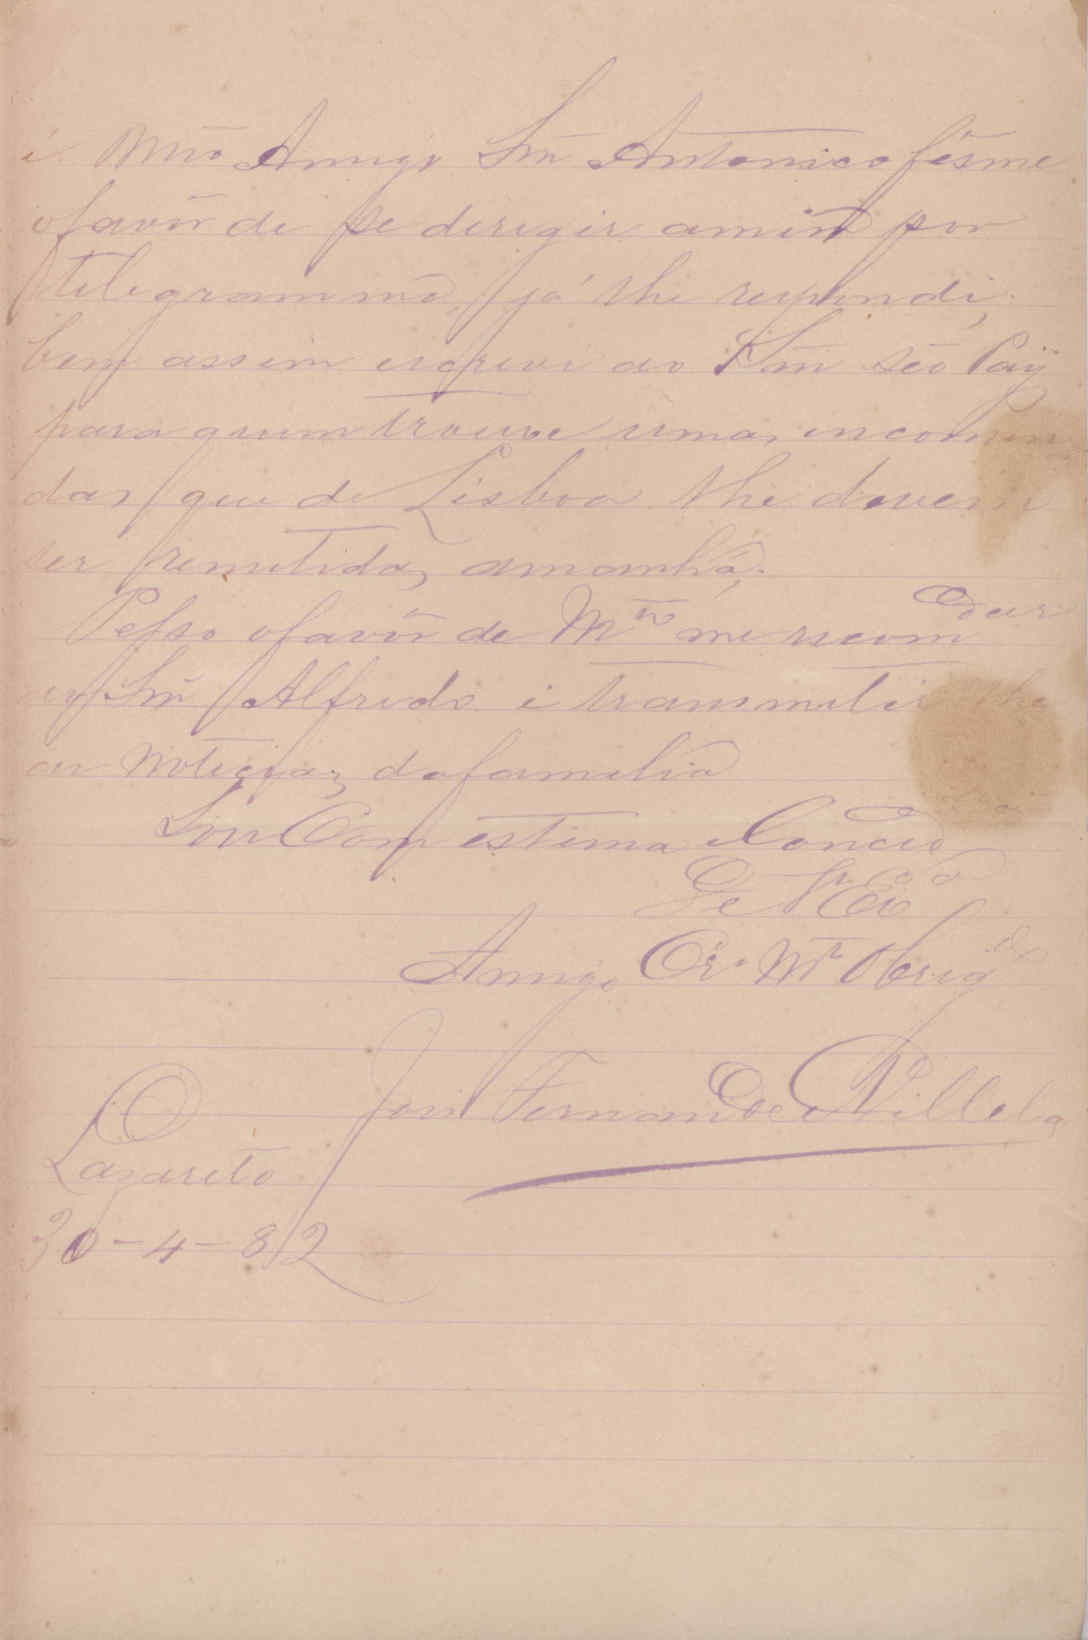 i Mᵗᵒ Amigo Snr Antonico fésme
o favôr de se deregir a mim por
telegramma, já lhe respondi;
bem assim escrevi ao Snr Séo Paÿ
para quem trouxe umas incomen
das que de Lisboa lhe devem
ser remetidas, amanhã.
Pesso o favôr de Mᵗᵒ me recomᵈᵃʳ
ao Snr Alfredo i transmetir lhe
as Noticias da familia
Sou Com estima
De Vᵃ Exᶜⁱᵃ
Amigo Crº Mᵗº Obrigᵈº
José Fernandes Villela
Lazareto
30-4-82